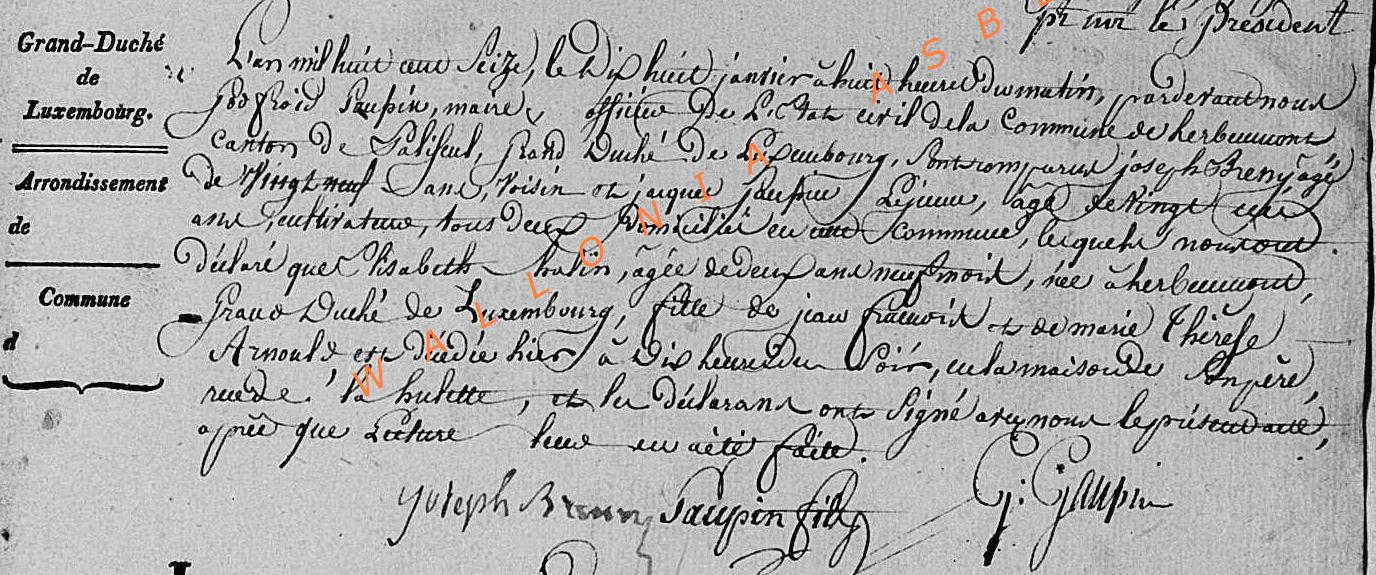 pr nr le Président
Grand-Duché
de
Luxembourg.
Arrondissement
de
Commune
d
L'an mil huit cent Seize, le Dix huit janvier à huit heures Du matin, pardevant nous
Godfroid Gaupin, maire, officier De L'Etat civil de la Commune de herbeumont
Canton De Paliseul, Grand Duché De Luxembourg, Sont comparus joseph Breny, âgé
De Vingt neuf ans, Voisin et jacques Gaupin Lejeune, âgé de Vingt
ans, cultivateur, tous deux Domicilié en cette commune, lesquels nous ont
Déclaré que Elisabeth halin, âgée de deux ans neuf mois, née à herbeumont,
Grand Duché de Luxembourg, fille de jean françois et de marie Thérèse
Arnould est décédée hier à Dix heures du Soir, en la maison de Son père,
rue de la hulette, et les déclarans ont Signé avec nous le présent acte,
après que Lecture leur en a été faite.
Joseph Breny Gaupin fils G: Gaupin
WALLONIA ASB